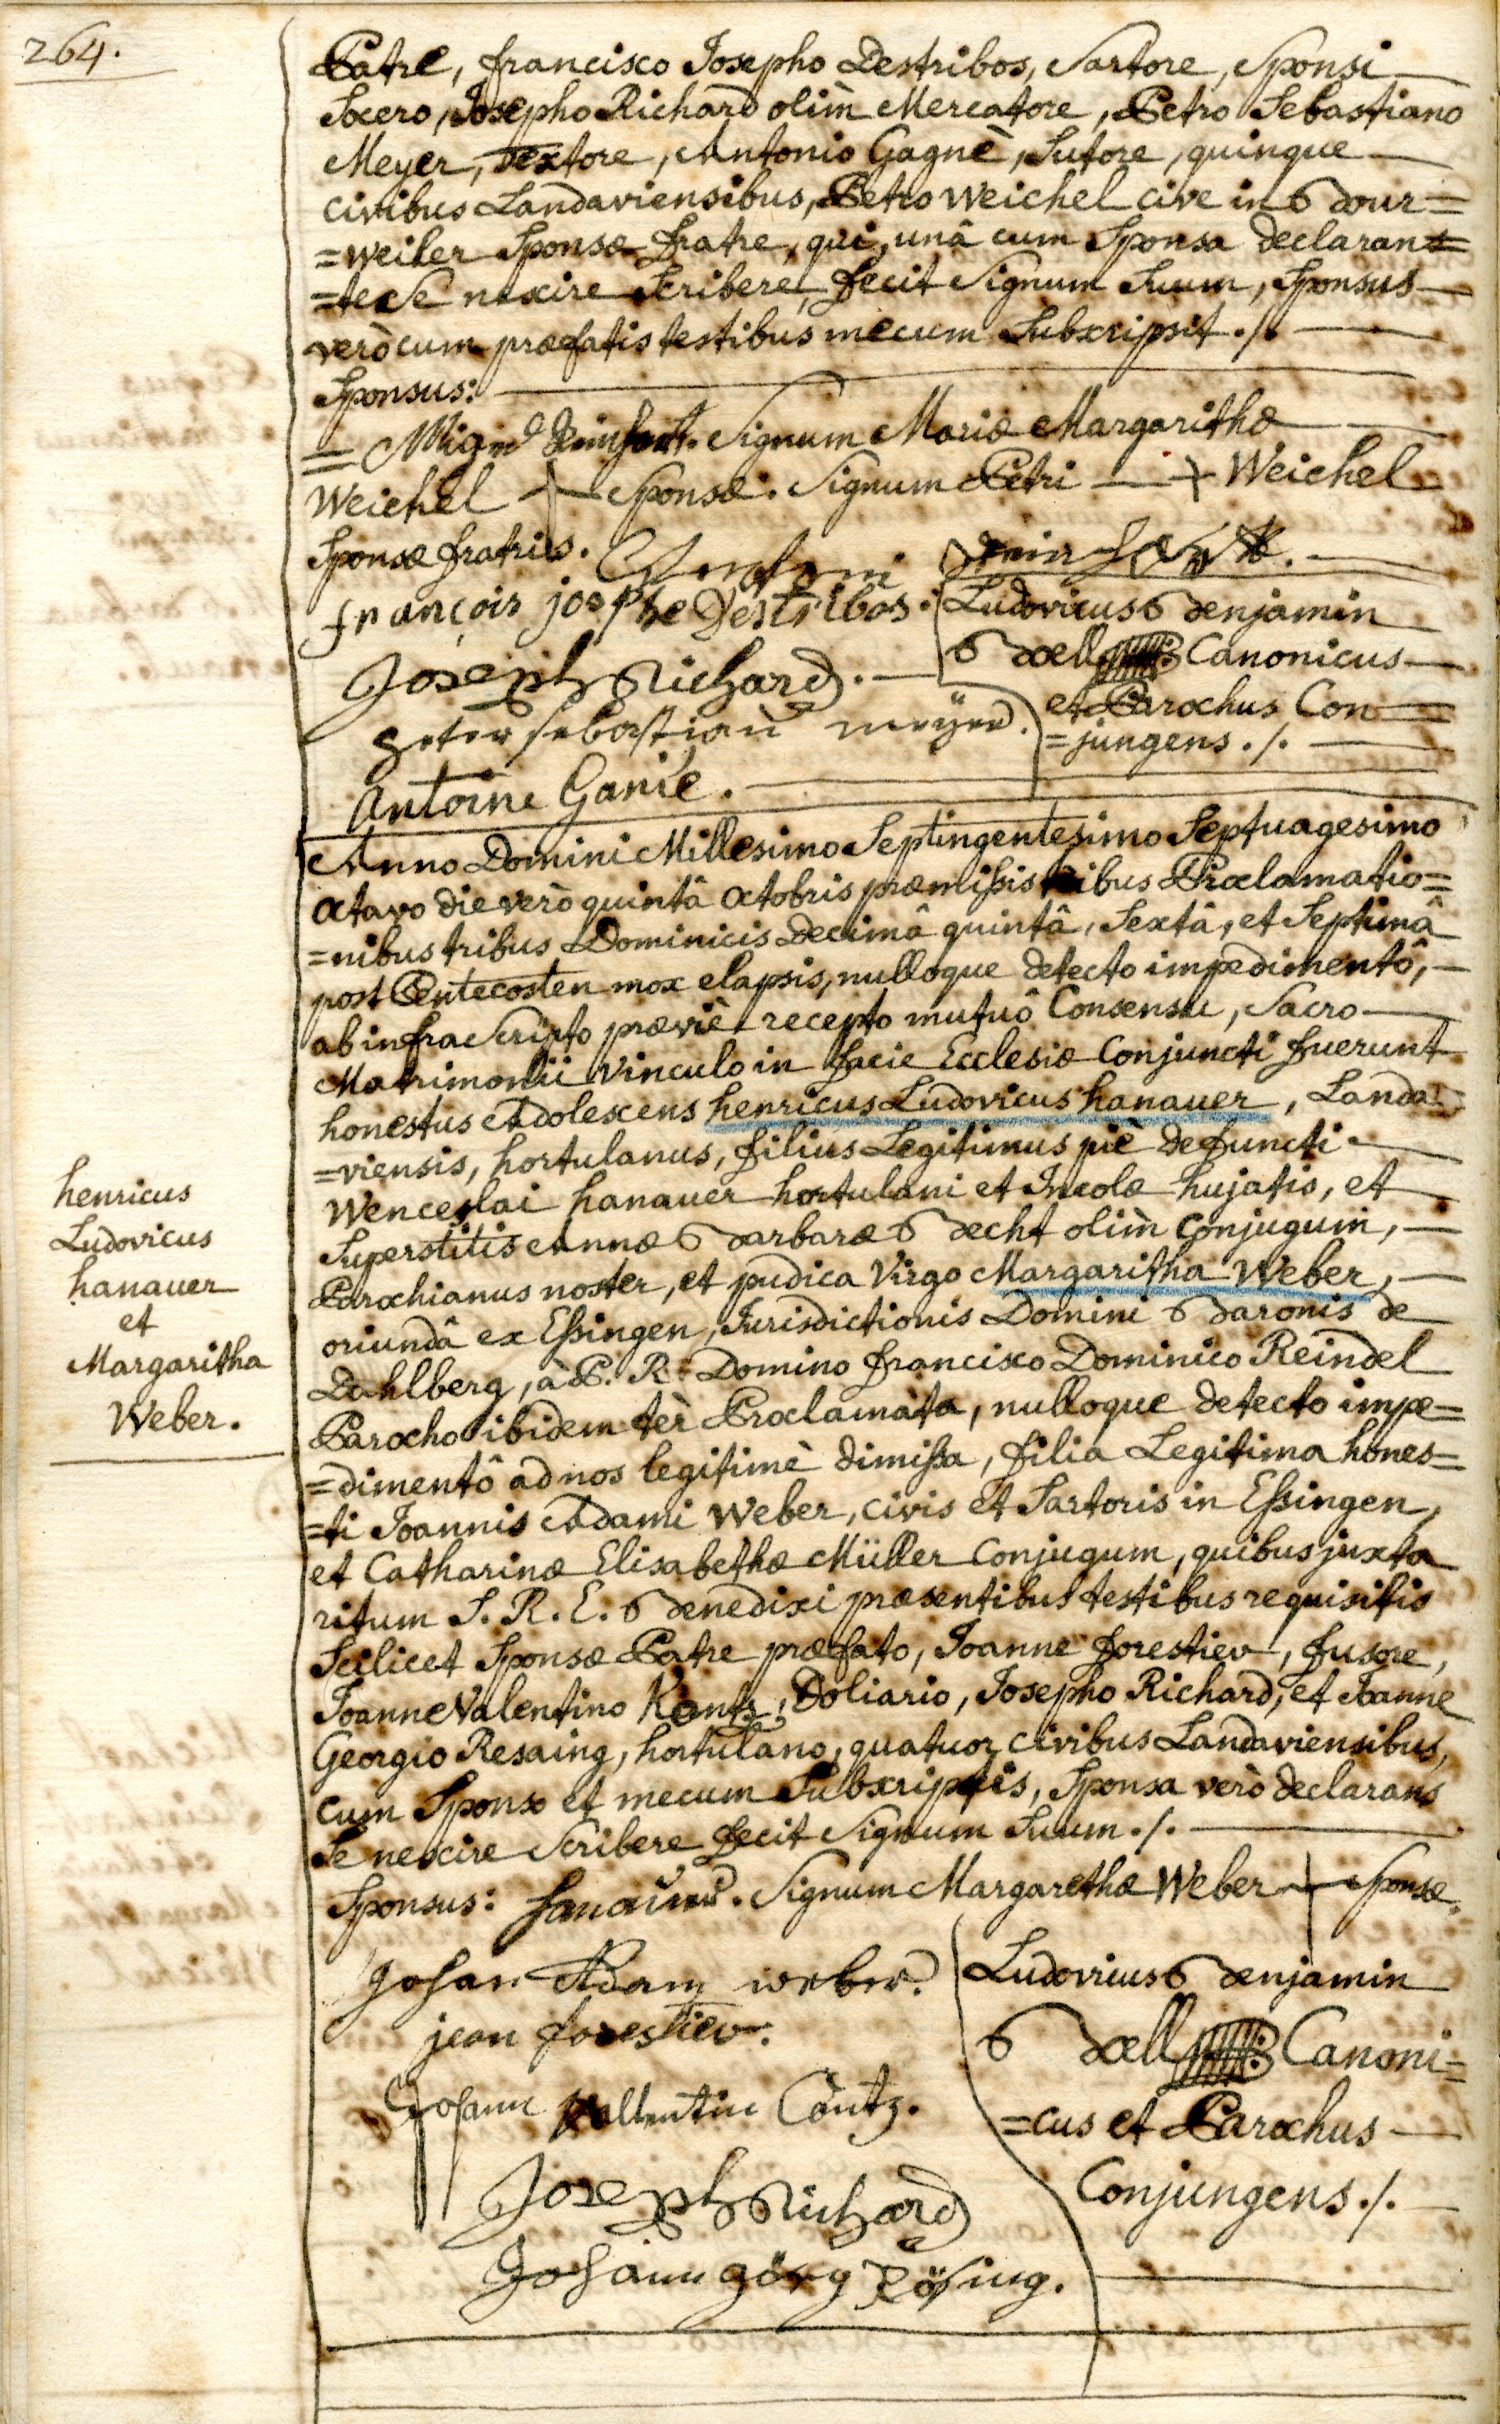 264.
Patre, francisco Josepho Destribos, Sartore, Sponsi
Socero, Josepho Richard olim Mercatore, Petro Sebastiano
Meyer, Textore, Antonio Gagnè, Sutore, quinque
civibus Landaviensibus, Petro Weichel cive in Bour=
=weiler Sponsæ fratre, qui, unâ cum Sponsa declaran=
=te se nescire Scribere, fecit Signum Suum, Sponsus
verò cum præfatis testibus mecum Subscripsit ./.
Sponsus:
Signum Mariæ Margarithæ
Weichel + Sponsæ. Signum Petri + Weichel
Sponsæ fratris.
françois josephe Destribos.
Joseph Richard.
peter sebastian meÿer.
Antoine Ganie.
Ludovicus Benjamin
Boell Canonicus
et Parochus Con=
=jungens ./.
henricus
Ludovicus
hanauer
et
Margaritha
Weber.
Anno Domini Millesimo Septingentesimo Septuagesimo
Octavo die verò quintâ Octobris præmissis tribus Proclamatio=
=nibus tribus Dominicis Decimâ quintâ, Sextâ, et Septimâ
post Pentecosten mox elapsis, nulloque detecto impedimentô,
ab infra Scripto præviè recepto mutuô Consensu, Sacro
Matrimonii Vinculo in facie Ecclesiæ Conjuncti fuerunt
honestus Adolescens henricus Ludovicus hanauer, Landa
=viensis, hortulanus, filius Legitimus piè defuncti
Wenceslai hanauer hortulani et Incolæ hujatis, et
Superstitis Annæ Barbaræ Becht olim Conjugum,
Parochianus noster, et pudica Virgo Margaritha Weber,
oriundâ ex Essingen, Jurisdictionis Domini Baronis de
Dahlberg, à P. R. Domino francisco Dominico Reindel
Parocho ibidem tèr Proclamata, nulloque detecto impe=
=dimentô ad nos legitimè dimissa, filia Legitima hones=
=ti Joannis Adami Weber, civis et Sartoris in Essingen,
et Catharinæ Elisabethæ Müller Conjugum, quibus juxta
ritum S. R. E. Benedixi præsentibus testibus requisitis
Scilicet Sponsæ Patre præfato, Joanne forestiev, fusore,
Joanne Valentino Kantz, Doliario, Josepho Richard, et Joanne
Georgio Resaing, hortulano, quatuor civibus Landaviensibus,
cum Sponso et mecum Subscriptis, Sponsa verò declarans
Se nescire Scribere fecit Signum Suum ./.
Sponsus: hanauer. Signum Margarethæ Weber + Sponsæ.
Johan Adam weber.
jean forestiev.
Johann Vallentin Cantz.
Joseph Richard
Johann görg Rösing.
Ludovicus Benjamin
Boell Canoni=
=cus et Parochus
Conjungens ./.